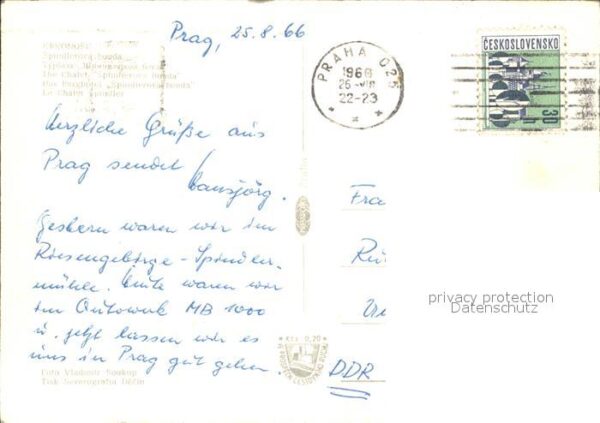 Prag, 25.8.66
Špindlerova bouda
The Chalet "Špindlerova bouda"
Le Chalet
Herzliche Grüße aus
Prag sendet
Hansjörg.
Gestern waren wir im
Riesengebirge - Spindler-
mühle. Heute waren wir
im Autowerk MB 1000
u. jetzt lassen wir es
uns in Prag gut gehen.
Foto Vladimír Soukup
Tisk Severografia Děčín
Kčs 0,20
PRAHA 025
1966
25.VIII
22-23
ČESKOSLOVENSKO
30
Fra
DDR
privacy protection
Datenschutz